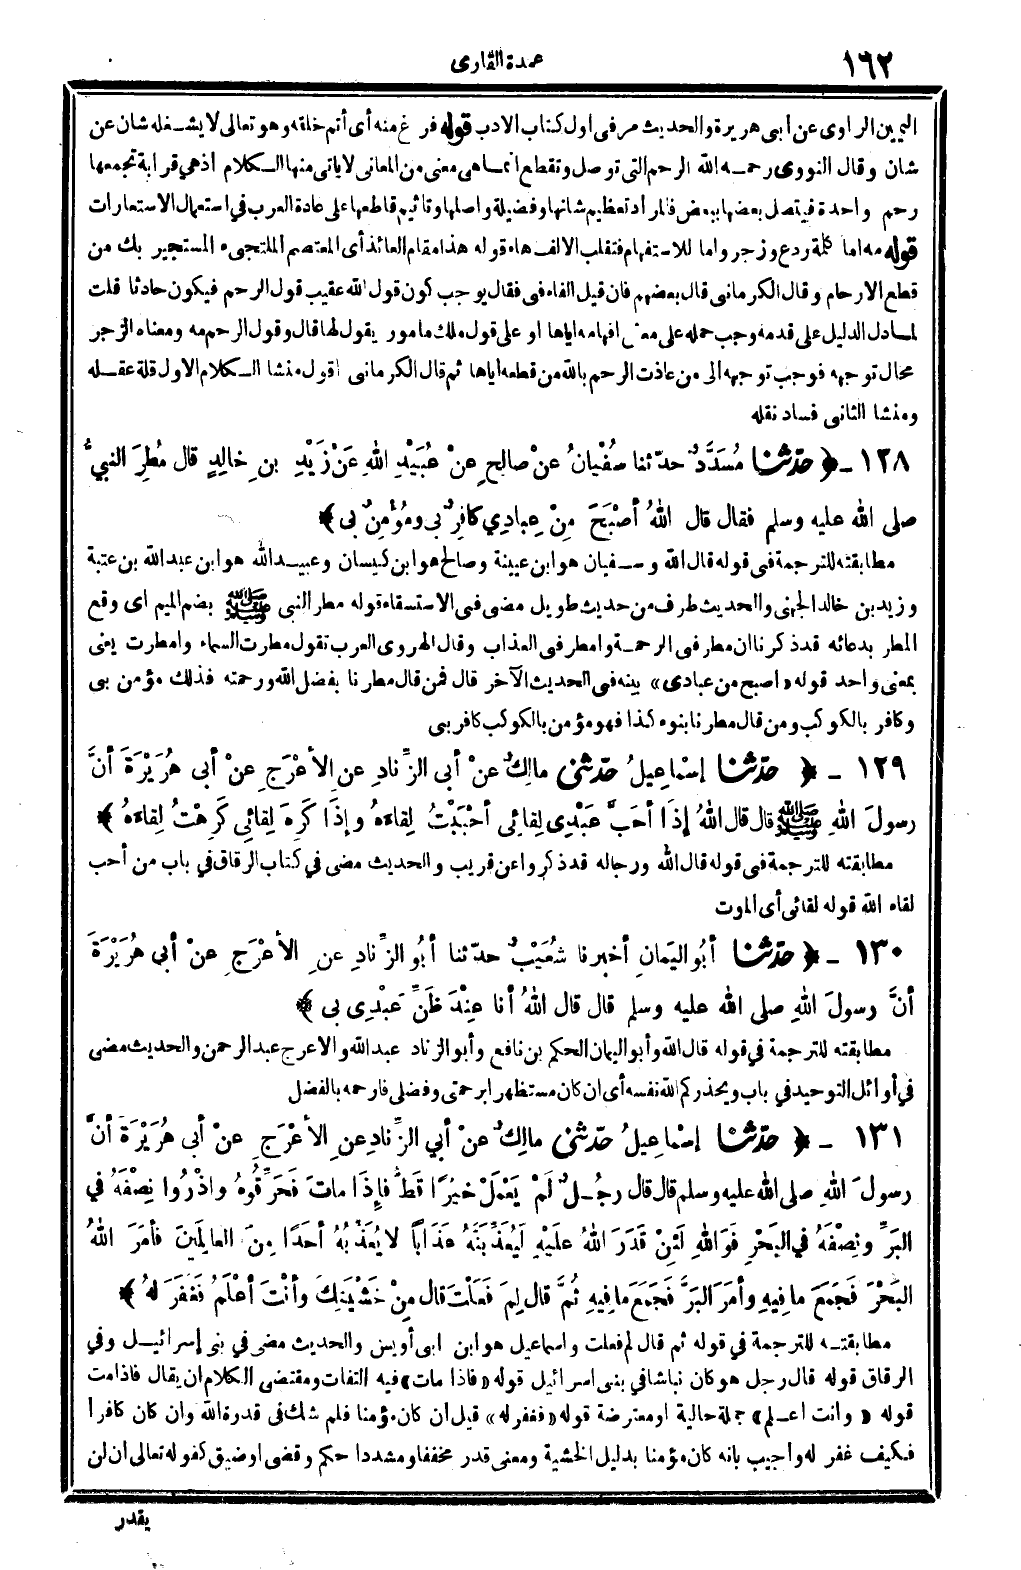 ١٦٢
عمدة القارى
اليمين الراوى عن أبى هريرة والحديث مر فى اول كتاب الادب قوله فرغ منه أى أتم خلقه وهو تعالى لا يشغله شان عن
شان وقال النووى رحمه الله الرحم التى توصل وتقطع انما هى معنى من المعانى لا ياتى منها الكلام اذهي قرابة تجمعها
رحم واحدة فيتصل بعضها ببعض فالمراد تعظيم شانها وفضيلة واصلها وتاثيم قاطعها على عادة العرب في استعمال الاستعارات
قوله مه اما كلمة ردع وزجر واما للاستفهام فتقلب الالف هاء قوله هذا مقام العائذ أى المعتصم الملتجىء المستجير بك من
قطع الارحام وقال الكرمانى قال بعضهم فان قيل الفاء فى فقال يوجب كون قول الله عقيب قول الرحم فيكون حادثا قلت
لما دل الدليل على قدمه وجب حمله على معنى افهامه اياها او على قول ملك مامور يقول لها قال وقول الرحم مه ومعناه الزجر
محال توجهه فوجب توجهه الى من عاذت الرحم بالله من قطعه اياها ثم قال الكرمانى اقول منشا الكلام الاول قلة عقله
ومنشا الثانى فساد نقله
١٢٨ ـ ﴿ حدّثنا مُسَدَّدٌ حدّثنا سُفْيانُ عنْ صالِحٍ عنْ عُبَيْدِ اللهِ عَنْ زَيْدِ بنِ خالِدٍ قال مُطِرَ النبيُّ
صلى الله عليه وسلم فقال قال اللهُ أصْبَحَ مِنْ عِبادِي كافِرٌ بى ومُؤْمِنٌ بى ﴾
مطابقته للترجمة فى قوله قال الله وسفيان هو ابن عيينة وصالح هو ابن كيسان وعبيدالله هو ابن عبد الله بن عتبة
وزيد بن خالد الجهنى والحديث طرف من حديث طويل مضى فى الاستسقاء قوله مطر النبى ﷺ بضم الميم اى وقع
المطر بدعائه قد ذكرنا ان مطر فى الرحمة وامطر فى العذاب وقال الهروى العرب تقول مطرت السماء وامطرت يعنى
بمعنى واحد قوله «اصبح من عبادى» بينه فى الحديث الآخر قال فمن قال مطرنا بفضل الله ورحمته فذلك مؤمن بى
وكافر بالكوكب ومن قال مطرنا بنوء كذا فهو مؤمن بالكوكب كافر بى
١٢٩ ـ ﴿ حدّثنا إسْماعِيلُ حدّثنى مالِكٌ عنْ أبى الزِّنادِ عنِ الأعْرَجِ عنْ أبى هُرَيْرَةَ أنَّ
رسولَ اللهِ ﷺ قال قال اللهُ إذَا أحَبَّ عَبْدِى لِقائِى أحْبَبْتُ لِقاءَهُ وإذَا كَرِهَ لِقائِي كَرِهْتُ لِقاءَهُ ﴾
مطابقته للترجمة فى قوله قال الله ورجاله قد ذكروا عن قريب والحديث مضى في كتاب الرقاق في باب من أحب
لقاء الله قوله لقائى أى الموت
١٣٠ ـ ﴿ حدّثنا أبُو اليَمانِ أخبرنا شُعَيْبٌ حدّثنا أبُو الزِّنادِ عنِ الأعْرَجِ عنْ أبى هُرَيْرَةَ
أنَّ رسولَ اللهِ صلى الله عليه وسلم قال قال اللهُ أنا عِنْدَ ظَنِّ عَبْدِى بى ﴾
مطابقته للترجمة في قوله قال الله وأبو اليمان الحكم بن نافع وأبو الزناد عبد الله والاعرج عبد الرحمن والحديث مضى
في أوائل التوحيد في باب ويحذركم الله نفسه أى ان كان مستظهرا برحمتى وفضلى فارحمه بالفضل
١٣١ ـ ﴿ حدّثنا إسْماعِيلُ حدّثنى مالِكٌ عنْ أبي الزِّنادِ عنِ الأعْرَجِ عنْ أبى هُرَيْرَةَ أنَّ
رسولَ اللهِ صلى الله عليه وسلم قال قال رجُلٌ لَمْ يَعْمَلْ خَيْرًا قَطُّ فإِذَا ماتَ فَحَرِّقُوهُ واذْرُوا نِصْفَهُ في
البَرِّ ونِصْفَهُ في البَحْرِ فَوَاللهِ لَئِنْ قَدَرَ اللهُ علَيْهِ لَيُعَذِّبَنَّهُ عَذَاباً لا يُعَذِّبُهُ أحَدًا مِنَ العالَمِينَ فأمَرَ اللهُ
البَحْرَ فَجَمَعَ ما فِيهِ وأمَرَ البَرَّ فَجَمَعَ ما فِيهِ ثُمَّ قال لِمَ فَعَلْتَ قال مِنْ خَشْيَتِكَ وأنْتَ أعْلَمُ فَغَفَرَ لهُ ﴾
مطابقته للترجمة في قوله ثم قال لم فعلت واسماعيل هو ابن ابى أويس والحديث مضى في بنى إسرائيل وفي
الرقاق قوله قال رجل هو كان نباشا في بنى اسرائيل قوله «فاذا مات» فيه التفات ومقتضى الكلام ان يقال فاذا مت
قوله «وانت اعلم» جملة حالية او معترضة قوله «فغفر له» قيل ان كان مؤمنا فلم شك فى قدرة الله وان كان كافرا
فكيف غفر له وأجيب بانه كان مؤمنا بدليل الخشية ومعنى قدر مخففا ومشددا حكم وقضى او ضيق كقوله تعالى ان لن
يقدر